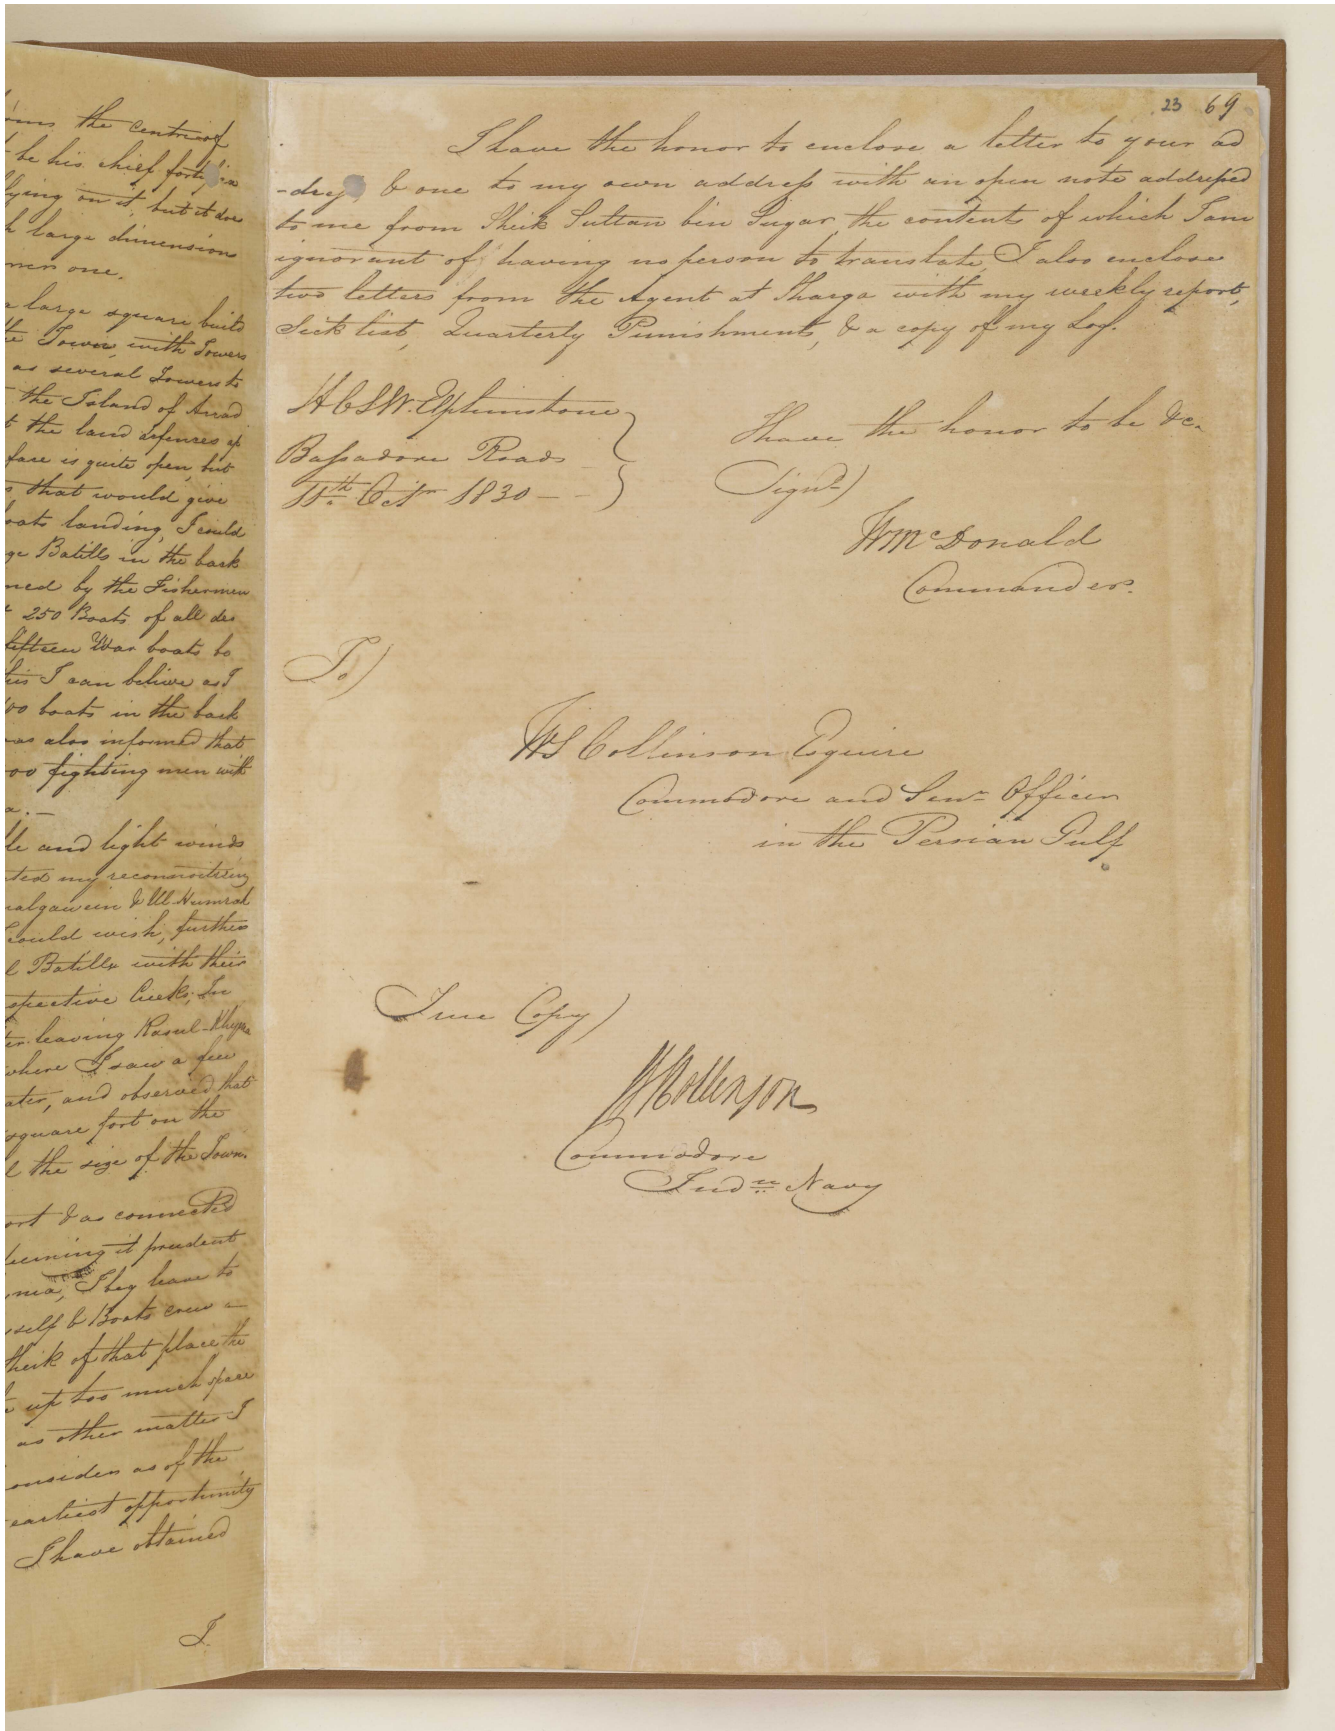 the centre of
be his chief fort, in
lying on it, but it does
large dimensions
one.
large square built
Town, with Towers
as several Towers to
the Island of Arrad
the land defences of
face is quite open, but
that would give
boats landing, I could
Batills in the back
by the Fishermen
250 Boats of all des
fifteen War boats to
this I can believe as I
00 boats in the back
was also informed that
00 fighting men with
and light winds
my reconnoitring
& Ul Humrah
could wish, further
Batills with their
Creeks. In
leaving Rasul-Khyma
where I saw a few
and observed that
square fort on the
the size of the Town.
& as connected
deeming it prudent
I beg leave to
self & Boats crew
Sheik of that place the
up too much space
as other matter I
consider as of the
earliest opportunity
I have obtained
I
23 69
I have the honor to enclose a letter to your ad
-dress & one to my own address with an open note addressed
to me from Sheik Sultan bin Sugar, the content of which I am
ignorant of, having no person to translate, I also enclose
two letters from the Agent at Sharga with my weekly report,
Sick list, Quarterly Punishments, & a copy of my Log.
H C S W. Elphinstone
Bassadore Roads
11th Octr 1830 - -
I have the honor to be &c.
Signd)
Wm McDonald
Commander.
To)
W S Collinson Esquire
Commodore and Senr Officer
in the Persian Gulf
True Copy)
W Collinson
Commodore
Indn Navy